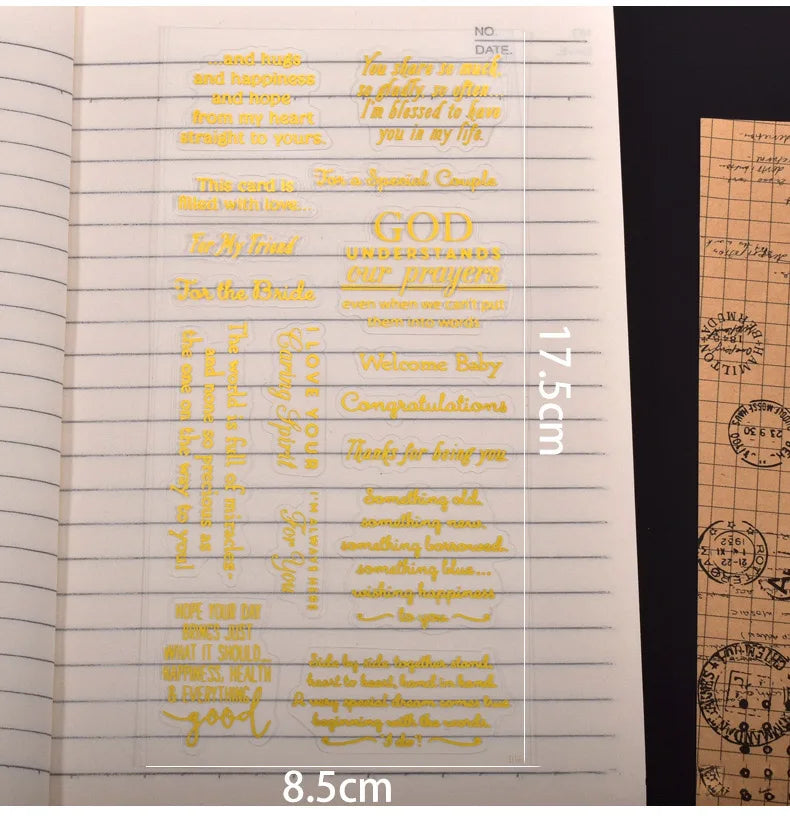 NO.
DATE.
...and hugs
and happiness
and hope
from my heart
straight to yours.
You share so much,
so gladly, so often...
I'm blessed to have
you in my life.
This card is
filled with love...
For a Special Couple
For My Friend
GOD
UNDERSTANDS
our prayers
even when we can't put
them into words
For the Bride
The world is full of miracles-
and none so precious as
the one on the way to you!
I LOVE YOUR
Caring Spirit
Welcome Baby
Congratulations
Thanks for being you
I'M ALWAYS HERE
For You
Something old,
something new,
something borrowed,
something blue...
wishing happiness
to you
HOPE YOUR DAY
BRINGS JUST
WHAT IT SHOULD...
HAPPINESS, HEALTH
& EVERYTHING
good
Side by side together stand,
heart to heart, hand in hand.
A very special dream comes true
beginning with the words,
I do!
17.5cm
8.5cm
HAMILTON
BERMUDA
23.9.30
ROTTERDAM
21-22
1 XI
1932